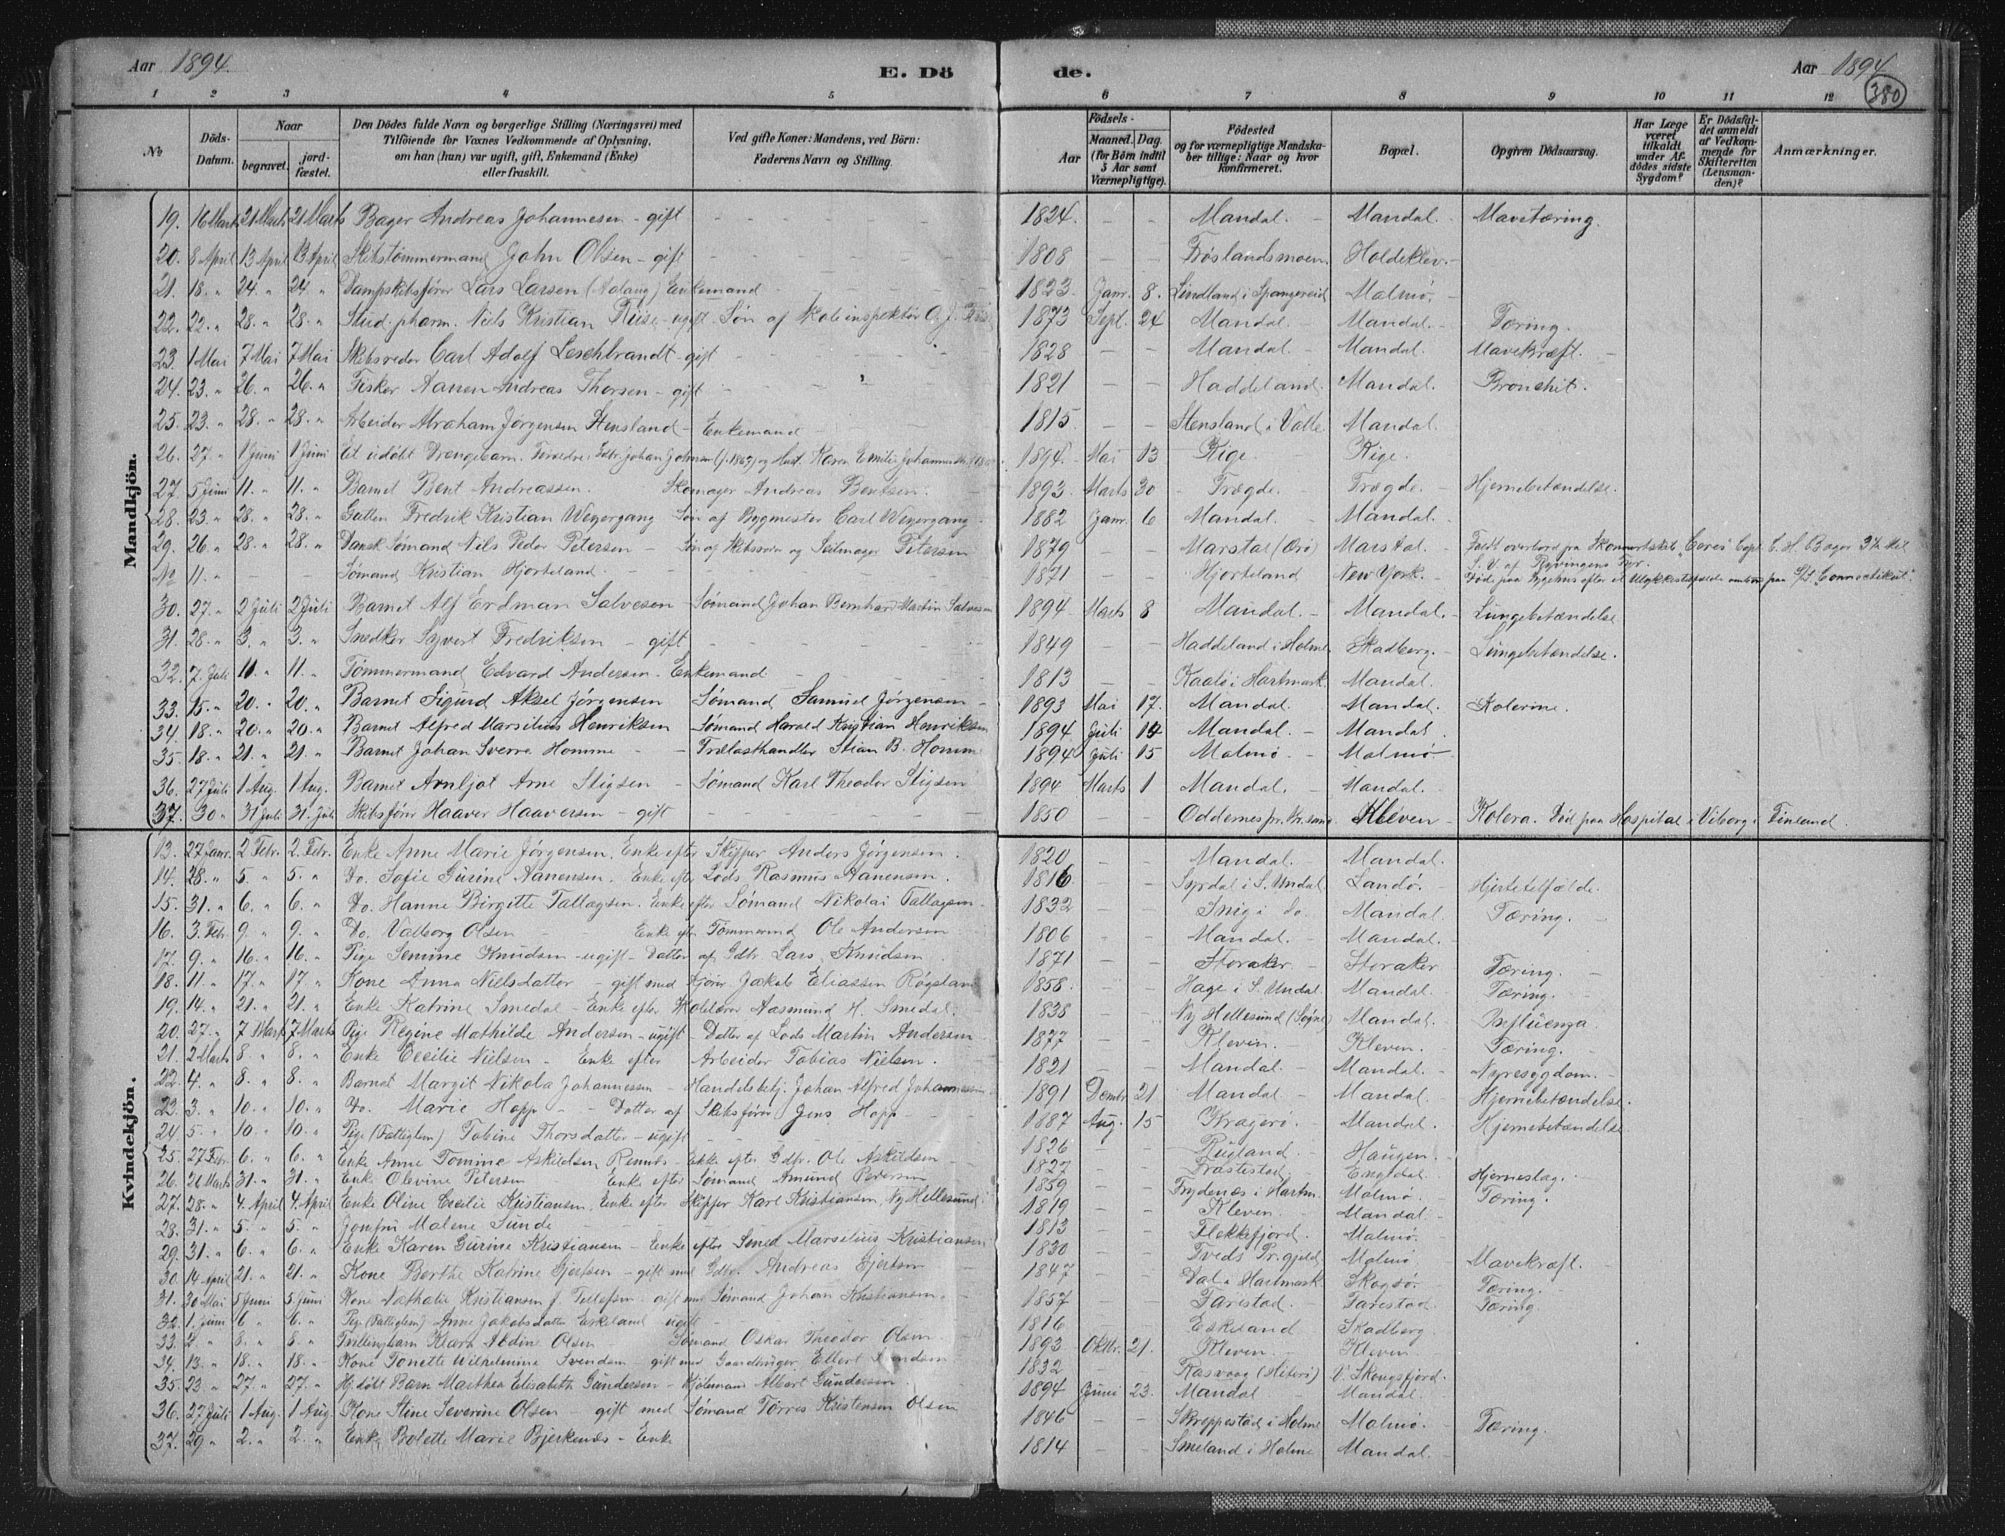 Aar 1894. E. Dö
de. Aar 1894
380
1 2 3 4 5
6 7 8 9 10 11 12
No Döds-Datum. Naar begravet. jordfæstet. Den Dödes fulde Navn og borgerlige Stilling (Næringsvei) med Tilföiende for Voxnes Vedkommende af Oplysning, om han (hun) var ugift, gift, Enkemand (Enke) eller fraskilt. Ved gifte Koner: Mandens, ved Börn: Faderens Navn og Stilling.
Födsels- Aar Maaned. Dag. (for Börn indtil 5 Aar samt Værnepligtige). Födested og for værnepligtige Mandskaber tillige: Naar og hvor konfirmeret. Bopæl. Opgiven Dödsaarsag. Har Læge været tilkaldt under Afdödes sidste Sygdom? Er Dödsfaldet anmeldt af Vedkommende for Skifteretten (Lensmanden)? Anmærkninger.
Mandkjön.
19. 16 Marts 21 Marts 21 Marts Bager Andreas Johannesen - gift 1824. Mandal. Mandal. Mavetæring.
20. 8 April 13 April 13 April Skibstømmermand John Olsen - gift 1808 Frøslandsmoen. Holdeklev.
21. 18. " 24. " 24. " Dampskibsfører Lars Larsen Enkemand 1823. Janr. 8. Lindland i Spangereid Malmø.
22. 22. " 28. " 28. " Stud. pharm. Niels Kristian Riise - ugift. Søn af Skoleinspektør O. J. 1873 Sept. 24 Mandal. Mandal. Tæring.
23. 1 Mai 7 Mai 7 Mai Skibsreder Carl Adolf Leschbrandt - gift 1828 Mandal. Mandal. Mavekræft.
24. 23. " 26. " 26. " Fisker Aanen Andreas Thorsen - gift 1821 Haddeland. Mandal. Bronchit.
25. 23. " 28. " 28. " Arbeider Abraham Jørgensen Stensland - Enkemand 1815. Stensland i Valle Mandal.
26. 27. " 1 Juni 1 Juni Et udøbt Drengebarn. Forældre: Gdbr. Johan og Hust. Karen Emilie 1894. Mai 13 Rige. Rige.
27. 5 Juni 11. " 11. " Barnet Bent Andreassen. Skomager Andreas Bentsen. 1893. Marts 30 Trægde. Trægde. Hjernebetændelse.
28. 23. " 28. " 28. " Gutten Fredrik Kristian Wegergang Søn af Bygmester Carl Wegergang 1882 Janr. 6 Mandal. Mandal.
29. 26. " 28. " 28. " Dansk Sømand Niels Peder Petersen - Søn af Skibsreder og Seilmager Petersen 1879 Marstal (Ærö) Marstal. Faldt overbord fra Skonnertskib "Ceres" Capt. C. H. Bager 3 1/2 Mil S.V. af Ryvingens Fyr.
No 11. " Sømand Kristian Hjorteland. 1871 Hjorteland New York. Død paa Sygehus efter et Ulykkestilfælde ombord paa S/S "Connecticut".
30. 27. " 2 Juli 2 Juli Barnet Alf Erdman Salvesen - Sømand Johan Bernhard Martin Salvesen 1894 Marts 8 Mandal. Mandal. Lungebetændelse
31. 28. " 3. " 3. " Snedker Syvert Fredriksen - gift 1849 Haddeland i Holme Skadberg. Lungebetændelse.
32. 7. Juli 11. " 11. " Tømmermand Edvard Andersen. Enkemand 1813 i Hartmark Mandal.
33. 15. " 20. " 20. " Barnet Sigurd Aksel Jørgensen Sømand Samuel Jørgensen 1893 Mai 17. Mandal. Mandal. Kolerine.
34. 18. " 20. " 20. " Barnet Alfred Marsilius Henriksen Sømand Harald Kristian Henriksen 1894. Juli 14 Mandal. Mandal.
35. 18. " 21. " 21. " Barnet Johan Sverre Homme Trælasthandler Stian B. Homme 1894 Juli 15 Malmø Malmø
36. 27 Juli 1 Aug. 1 Aug. Barnet Arnljot Arne Stigsen Sømand Karl Theodor Stigsen 1894 Marts 1 Mandal. Mandal.
37. 30 " 31 Juli 31. Juli Skibsfører Haaver Haaversen - gift 1850 Oddernes pr. Kr.sand Kleven Kolera. Død paa Hospital i Viborg i Finland.
Kvindekjön.
13. 27 Janr. 2 Febr. 2. Febr. Enke Anne Marie Jørgensen. Enke efter Skipper Anders Jørgensen. 1820 Mandal. Mandal.
14. 28. " 5. " 5. " Do. Sofie Gurine Aanensen. Enke efter Lods Rasmus Aanensen. 1816 Syrdal i S. Undal Landø. Hjertetilfælde.
15. 31. " 6. " 6. " Do. Hanne Birgitte Tallagsen. Enke efter Sømand Nikolai Tallagsen 1832 Snig i Do. Mandal. Tæring.
16. 3. Febr. 9. " 9. " Do. Valborg Olsen Enke efter Tømmermd. Ole Andersen 1806 Mandal. Mandal.
17. 9. " 16. " 16. " Pige Semine Knudsen - ugift - Datter af Gdbr. Lars Knudsen. 1871 Storaker. Storaker Tæring.
18. 11. " 17. " 17. " Kone Anna Nielsdatter - gift med Jakob Eliassen Røgsland 1858. Hage i S. Undal Mandal. Tæring.
19. 14. " 21. " 21. " Enke Katrine Smedal - Enke efter Aasmund H. Smedal. 1838 Ny Hellesund (Søgne) Mandal. Influenza
20. 27. " 7 Marts 7 Marts Pige Regine Mathilde Andersen - ugift - Datter af Lods Martin Andersen 1877 Kleven. Kleven. Tæring.
21. 2 Marts 8. " 8. " Enke Cecilie Nielsen - Enke efter Arbeider Tobias Nielsen. 1821 Mandal. Mandal. Nyresygdom.
22. 4. " 8. " 8. " Barnet Margit Nikola Johannessen - Handelsbetj. Johan Alfred Johannessen 1891 Decmbr 21 Mandal Mandal. Hjernebetændelse.
23. 3. " 10. " 10. " Do. Marie Hopp Datter af Skibsfører Jens Hopp 1887 Aug. 15 Kragerø. Mandal. Hjernebetændelse
24. 5. " 10. " 10. " Pige (Fattiglem) Tobine Thorsdatter - ugift 1826 Rugland. Haugen.
25. 27 Febr. 6. " 6. " Enke Anne Tomine Askildsen - Enke efter Gdbr. Ole Askildsen 1827 Frøstestad. Engdal. Hjerneslag.
26. 26 Marts 31. " 31. " Enke Olevine Petersen Enke efter Sømand Amund Petersen 1859 Frydenæs i Hartm. Malmø. Tæring.
27. 28. " 4. April 4. April Enke Oline Cecilie Kristiansen. Enke efter Skipper Karl Kristiansen, Ny Hellesund. 1819 Kleven. Mandal.
28. 31. " 5. " 5. " Jomfru Malene Sunde 1813 Flekkefjord. Malmø.
29. 31. " 6. " 6. " Enke Karen Gurine Kristiansen - Enke efter Smed Marselius Kristiansen 1830 Tveds Pr.gjeld Malmø Mavekræft.
30. 14 April 21. " 21. " Kone Berthe Katrine Gjertsen - gift med Gdbr. Andreas Gjertsen 1847 Dal i Hartmark Skogsø. Tæring.
31. 30 Mai 5 Juni 5 Juni Kone Nathalie Kristiansen f. Tellefsen gift med Sømand Johan Kristiansen. 1857 Tarestad. Tarestad. Tæring.
32. 1. Juni 6 " 6. " Pige (Fattiglem) Anne Jakobsdatter Eskeland ugift 1816 Eskeland Skadberg.
33. 2. " 8. " 8. " Tvillingbarn Klara Nedine Olsen Sømand Oskar Theodor Olsen 1893 Oktbr. 21. Kleven. Kleven
34. 13. " 18. " 18. " Kone Tonette Wilhelmine Svendsen - gift med Ellert Svendsen 1832 Rasvaag (Hiterø) V. Skougsfjord.
35. 23 " 27. " 27. " Hj.døbt Barn Marthea Elisabeth Gundersen - Kjøbmand Albert Gundersen. 1894 Juni 23. Mandal Mandal.
36. 27 Juli 1 Aug. 1 Aug. Kone Stine Severine Olsen - gift med Sømand Tørres Kristensen Olsen 1846 Skroppestad i Holme Malmø. Tæring.
37. 29 " 2. " 2. " Enke Bolette Marie Bjerkenæs - Enke 1814 Smeland i Holme Mandal.